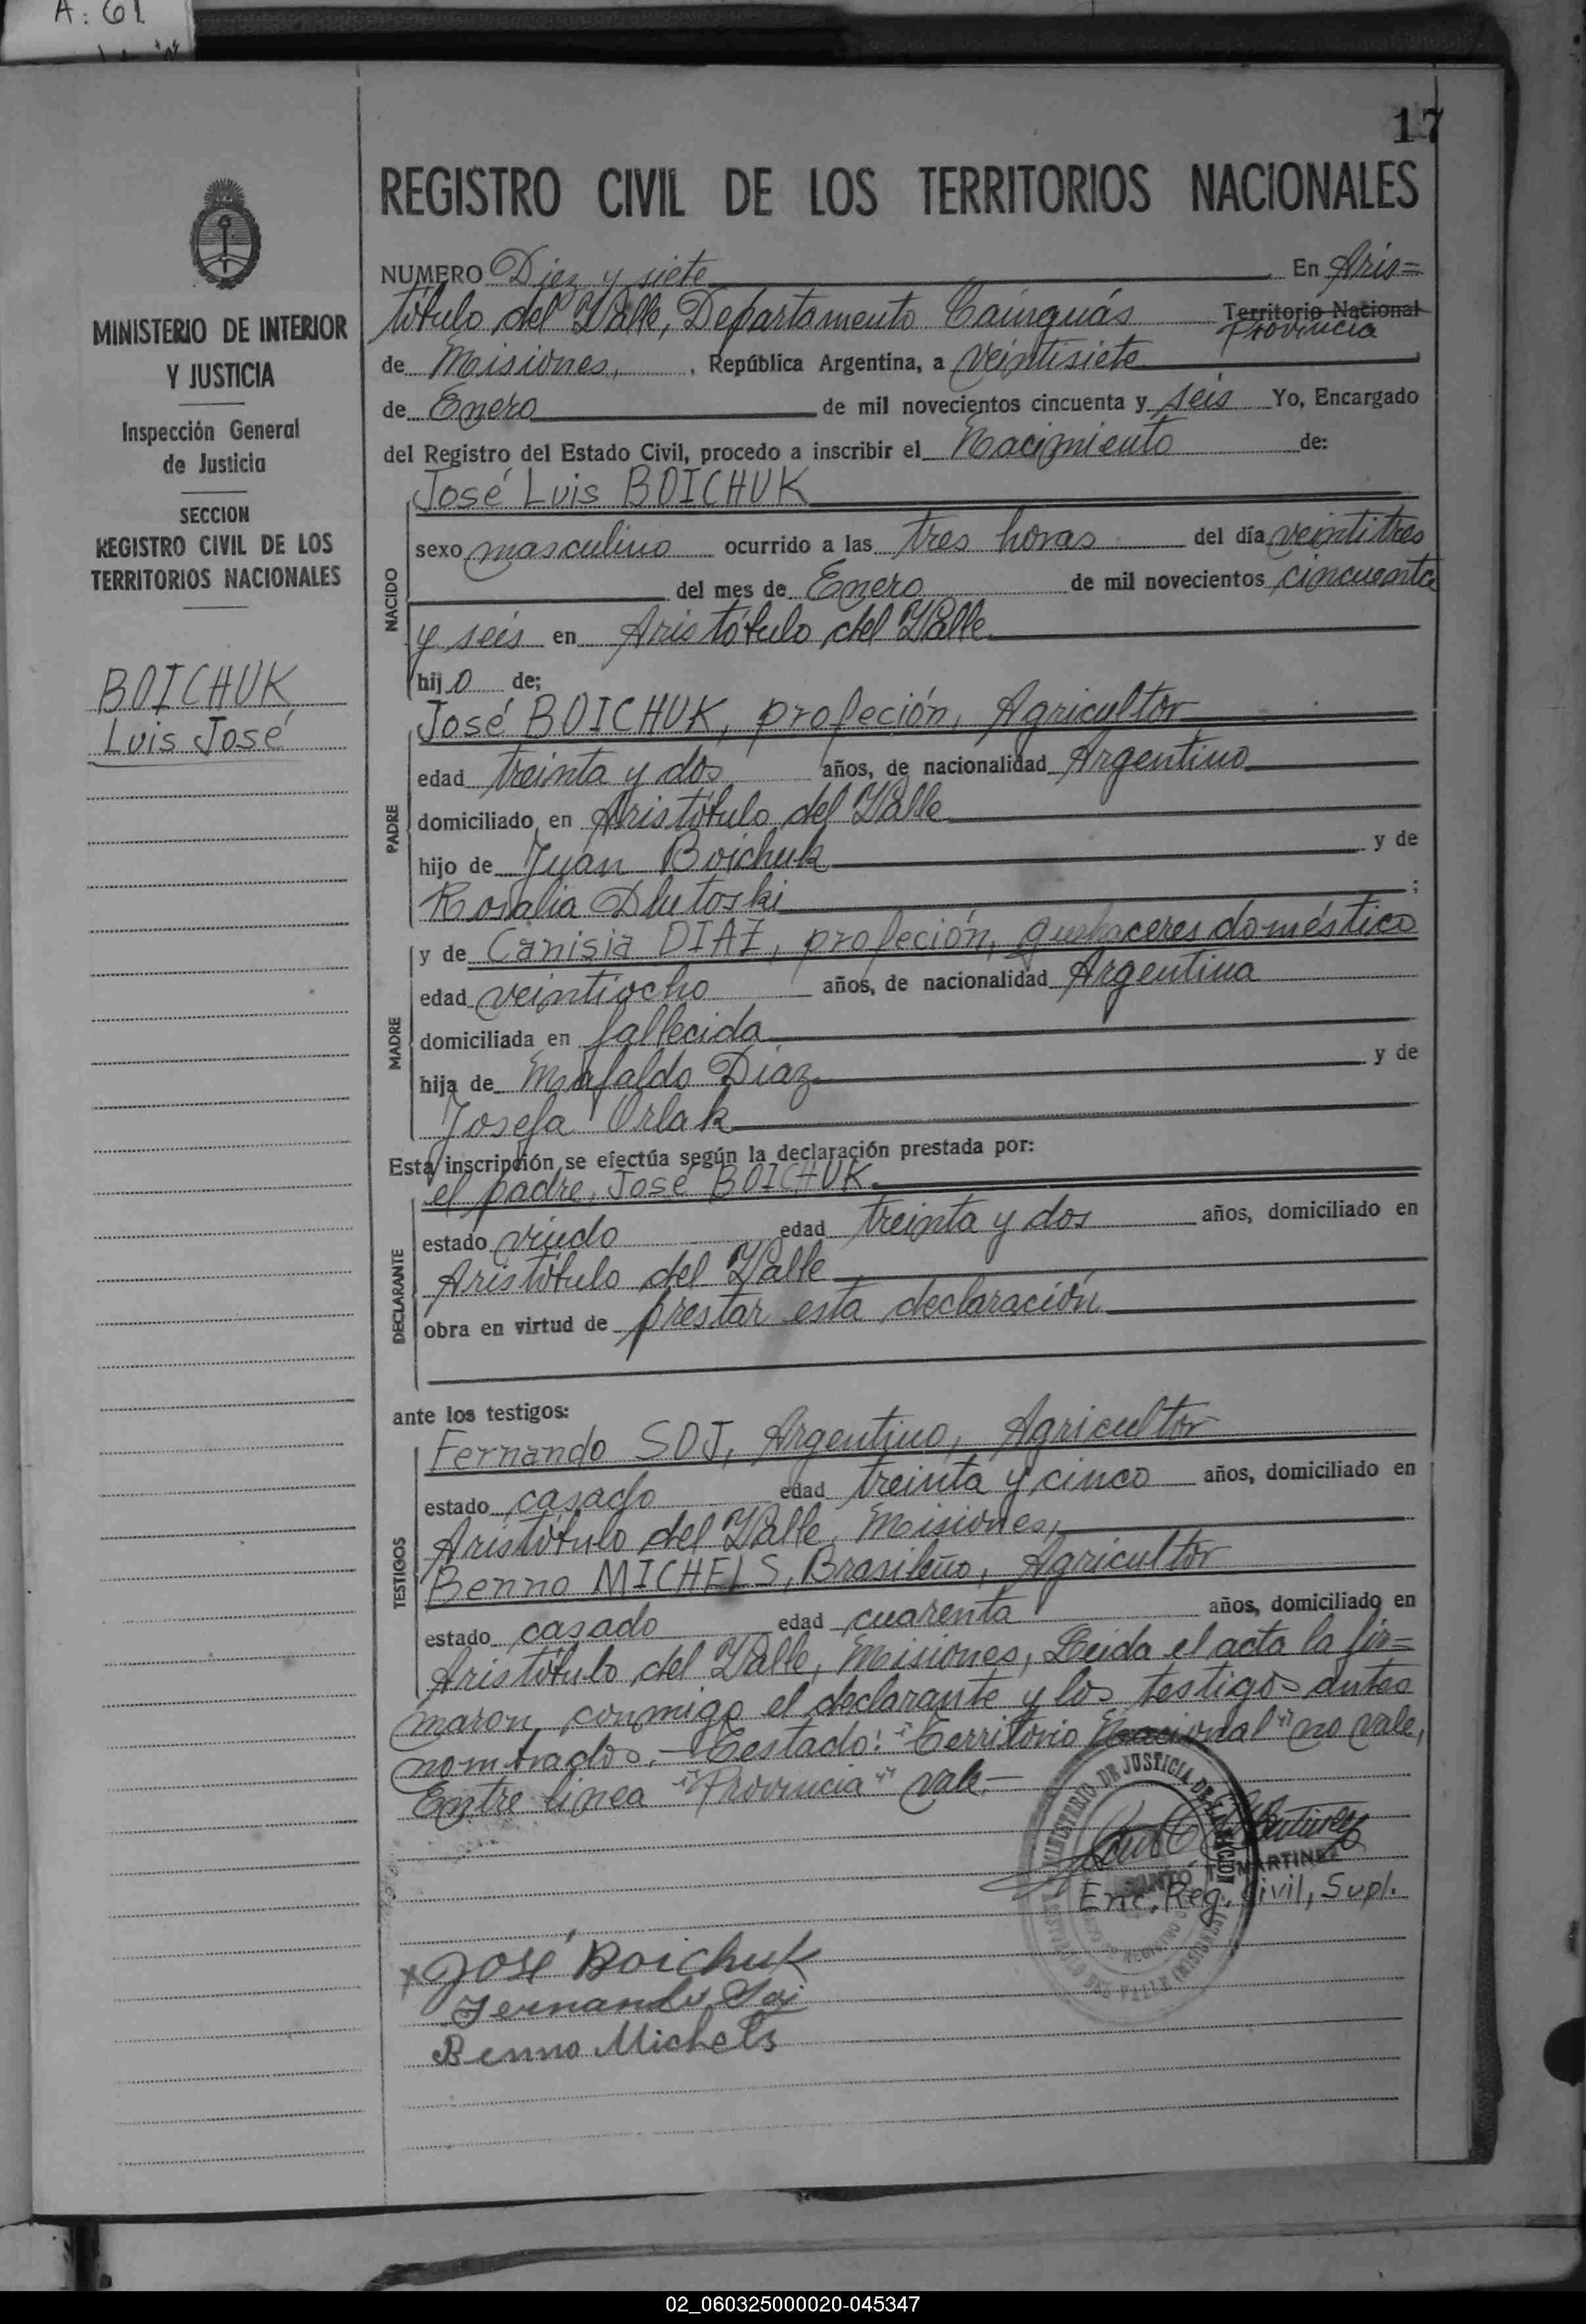 A: 61
17
MINISTERIO DE INTERIOR
Y JUSTICIA
Inspección General
de Justicia
SECCION
REGISTRO CIVIL DE LOS
TERRITORIOS NACIONALES
BOICHUK
Luis José
REGISTRO CIVIL DE LOS TERRITORIOS NACIONALES
NUMERO Diez y siete En Aris=
tótulo del Valle, Departamento Cainguás Territorio Nacional
Provincia
de Misiones, , República Argentina, a veintisiete
de Enero de mil novecientos cincuenta y seis Yo, Encargado
del Registro del Estado Civil, procedo a inscribir el Nacimiento de:
José Luis BOICHUK
NACIDO
sexo masculino ocurrido a las tres horas del día veintitres
del mes de Enero de mil novecientos cincuenta
y seis en Aristótulo del Valle
hijo de;
PADRE
José BOICHUK, profeción, Agricultor
edad treinta y dos años, de nacionalidad Argentino
domiciliado en Aristótulo del Valle
hijo de Juan Boichuk y de
Rosalia Dlutoski ;
MADRE
y de Canisia DIAZ, profeción, quehaceres doméstico
edad veintiocho años, de nacionalidad Argentina
domiciliada en fallecida
hija de Mafaldo Diaz y de
Josefa Orlak
Esta inscripción se efectúa según la declaración prestada por:
DECLARANTE
el padre, José BOICHUK
estado viudo edad treinta y dos años, domiciliado en
Aristótulo del Valle
obra en virtud de prestar esta declaración
ante los testigos:
TESTIGOS
Fernando SOJ, Argentino, Agricultor
estado casado edad treinta y cinco años, domiciliado en
Aristótulo del Valle, Misiones,
Benno MICHELS, Brasileño, Agricultor
estado casado edad cuarenta años, domiciliado en
Aristótulo del Valle, Misiones, Leida el acta la fir=
maron, conmigo el declarante y los testigos antes
nombrados.- Testado: "Territorio Nacional" no vale,
Entre linea "Provincia" vale.-
MINISTERIO DE JUSTICIA DE LA NACION
MARTINEZ
Enc. Reg. Civil, Supl.
José Boichuk
Fernando Soj
Benno Michels
02_060325000020-045347